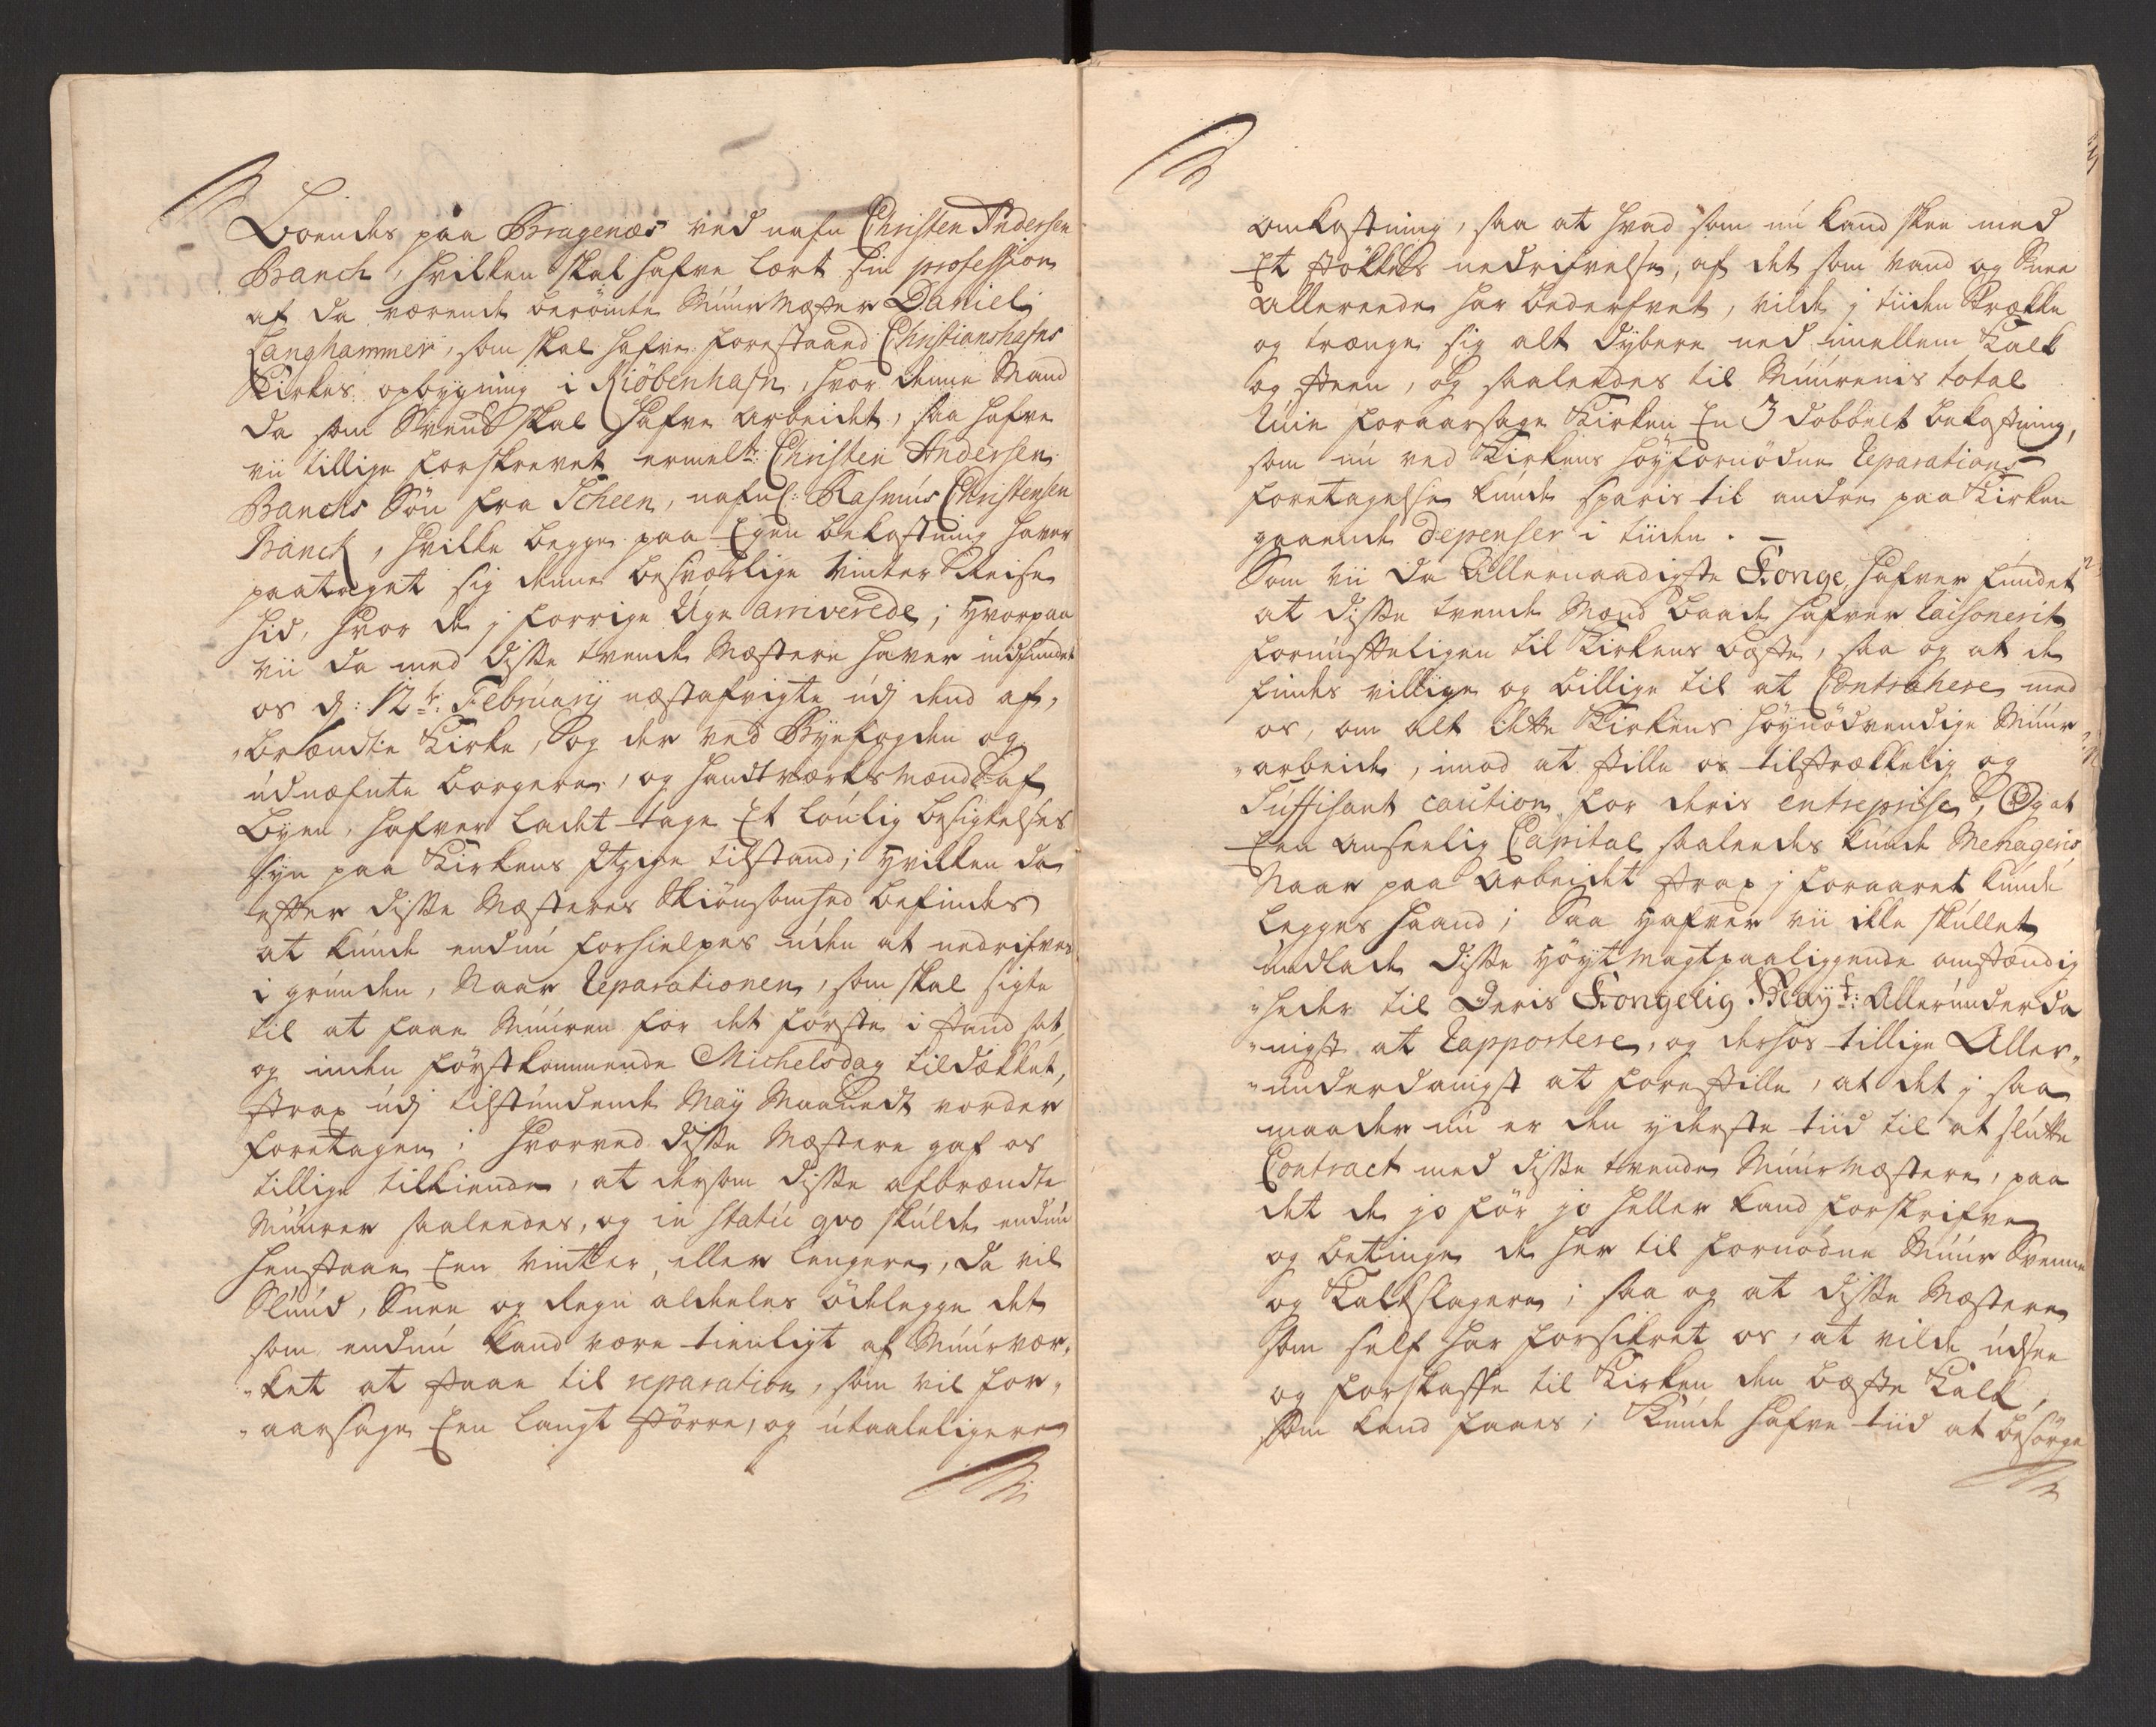 Boendes paa Bragenæs ved nafn Christen Andersen
Banch, hvilken skal hafve lært sin profession
af da værende berömte Muurmæster Daniel
Langhammer, som skal hafve forestaaed Christianshafns
Kirkes opbygning i Kiöbenhafn, hvor denne Mand
da som Svend skal hafve arbeidet, saa hafve
vii tillige forskrevet ermelte: Christen Andersen
Banchs Sön fra Scheen, nafnl: Rasmus Christensen
Banch, hvilke begge paa Egen bekostning haver
paataget sig denne besværlige Vinter Reise
hid, hvor de j forrige Uge arriverede; hvorpaa
vii da med disse tvende Mæstere haver indfundet
os d: 12te: February næstafvigte udj dend af„
„brændte Kirke, og der ved Byefogden og
udnæfnte borgere, og handtværksmænd af
Byen, hafver ladet tage Et louflig besigtelses
syn paa Kirkens Itzige tilstand; hvilken da
efter disse Mæsteres Skiönsomhed befindes
at kunde endnu forhielpes uden at nedrifves
i grunden, Naar Reparationen, som skal sigte
til at faae Muuren for det förste i stand sat,
og inden förstkommende Michelsdag tildækket,
strax udj tilstundende May Maanedt vorder
foretagen; hvorved disse Mæstere gaf os
tillige tilkiende, at dersom disse afbrændte
Muurer saaledes, og in statu qvo skulde endnu
henstaae Een vinter, eller lengere, da vil
Sluud, Snee og Regn aldeeles ödelegge det
som endnu kand være tienligt af Muurvær„
„ket at staae til reparation, som vil for„
„aarsage Een langt större, og utaaleligere
omkostning, saa at hvad som nu kand skee med
Et stökkes nedrifvelse, af det som vand og Snee
allereede har bederfvet, vilde j tiiden strække
og trænge sig alt dybere ned imellem Kalk
og steen, og saaleedes til Muurenis total
Ruin foraarsage Kirken En 3 dobbelt bekostning,
som nu ved Kirkens höyfornödne Reparations
foretagelse kunde sparis til andre paa Kirken
gaaende depenser i tiiden. –
Som vii da Allernaadigste Konge, hafver fundet
at disse tvende Mænd baade hafver raisonerit
fornufteligen til Kirkens beste, saa og at de
findes villige og billige til at Contrahere med
os, om alt dette Kirkens höynödvendige Muur
„arbeide, imod at stille os tilstrækkelig og
suffisant caution for deris entreprise, Og at
Een anseelig Capital saaledes kunde Menageris
Naar paa arbeidet strax j foraaret kunde
legges haand; Saa hafver vii ikke skullet
undlade disse höytmagtpaaliggende omstændig
„heder til Deris Kongelig Mayt: Allerunderda
„nigst at rapportere, og derhos tillige Aller„
„underdanigst at forestille, at det j saa
maader nu er den yderste tiid til at slutte
Contract med disse tvende Muurmæstere, paa
det de jo för jo heller kand forskrifve
og betinge de her til fornödne Muur Svenne
og Kalkslagere; saa og at disse Mæstere
som self har forsikret os, at vilde udsee
og forskaffe til Kirken den beste Kalk,
som kand faaes; kunde hafve tiid at besörge